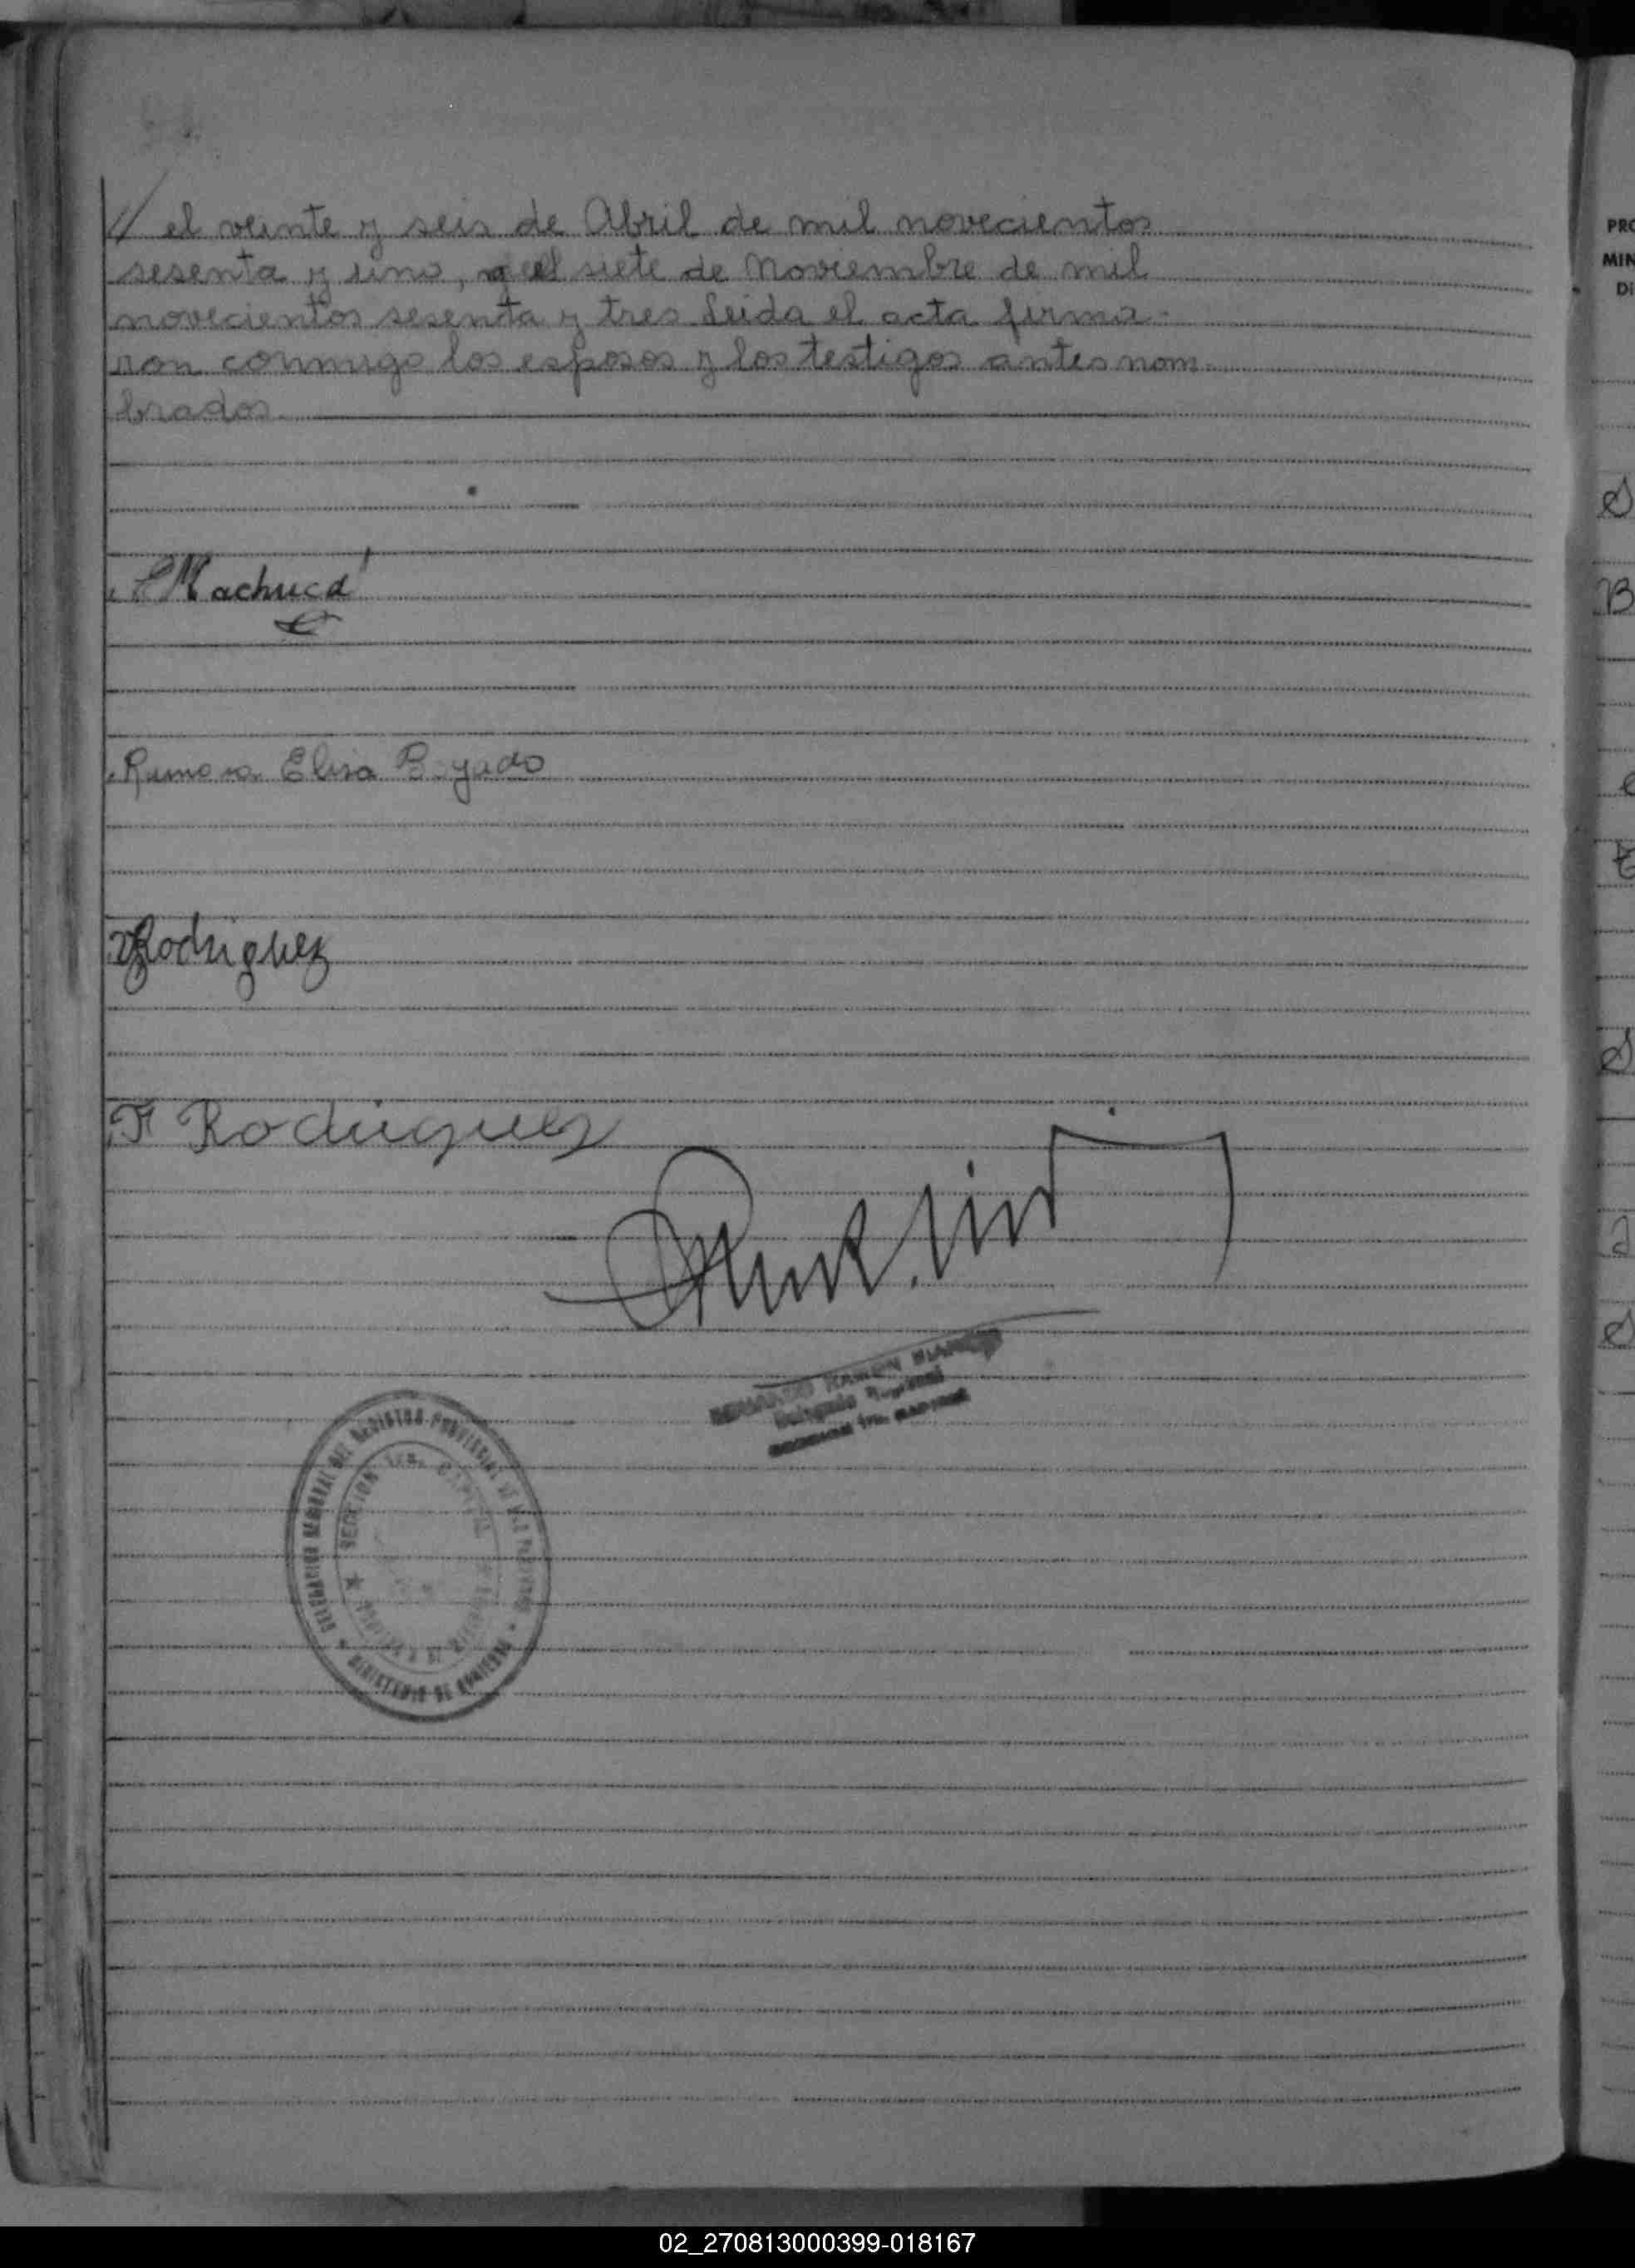 // el veinte y seis de Abril de mil novecientos
sesenta y uno, y el siete de Noviembre de mil
novecientos sesenta y tres Leida el acta firma-
ron conmigo los esposos y los testigos antes nom-
brados.
Machuca
Ramona Elisa B yado
Rodriguez
F Rodriguez
RAMON
DELEGACION REGIONAL DEL REGISTRO PROVINCIAL DE LAS PERSONAS
SECCION 1ra. CAPITAL
MINISTERIO DE GOBIERNO
PRO
MIN
DI
02_270813000399-018167